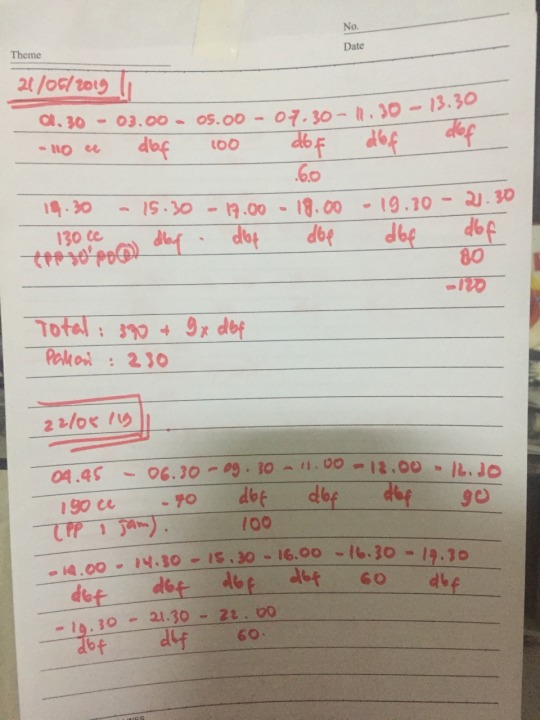 No.
Theme
Date
21/05/2019
01.30 - 03.00 - 05.00 - 07.30 - 11.30 - 13.30
-110 cc dbf 100 dbf dbf dbf
60
14.30 - 15.30 - 17.00 - 18.00 - 19.30 - 21.30
130 cc dbf dbf dbf dbf dbf
(PP 30'
80
-120
Total : 390 + 9x dbf
Pakai : 230
22/05/19
04.45 - 06.30 - 09.30 - 11.00 - 12.00 - 12.30
190 cc -70 dbf dbf dbf 90
(PP 1 jam). 100
-14.00 - 14.30 - 15.30 - 16.00 - 16.30 - 17.30
dbf dbf dbf dbf 60 dbf
- 19.30 - 21.30 - 22.00
dbf dbf 60.